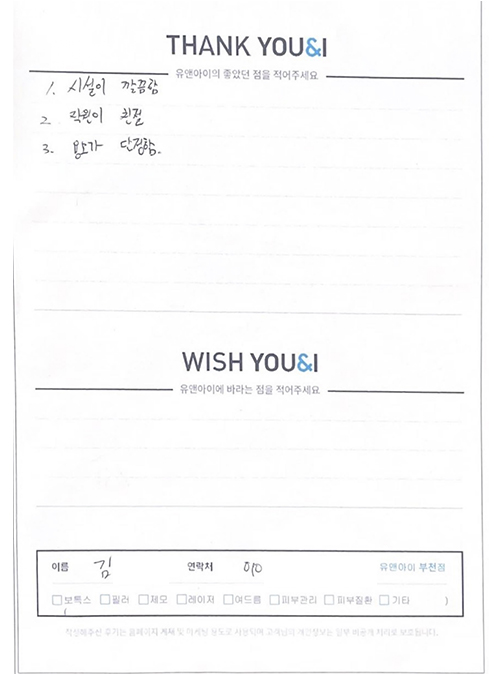 THANK YOU&I
유앤아이의 좋았던 점을 적어주세요
1. 시설이 깔끔함
2. 직원이 친절
3. 단정함.
WISH YOU&I
유앤아이에 바라는 점을 적어주세요
이름 김 연락처 010 유앤아이 부천점
보톡스 필러 제모 레이저 여드름 피부관리 피부질환 기타 ( )
작성해주신 후기는 홈페이지 게재 및 마케팅 용도로 사용되며 고객님의 개인정보는 일부 비공개 처리로 보호됩니다.